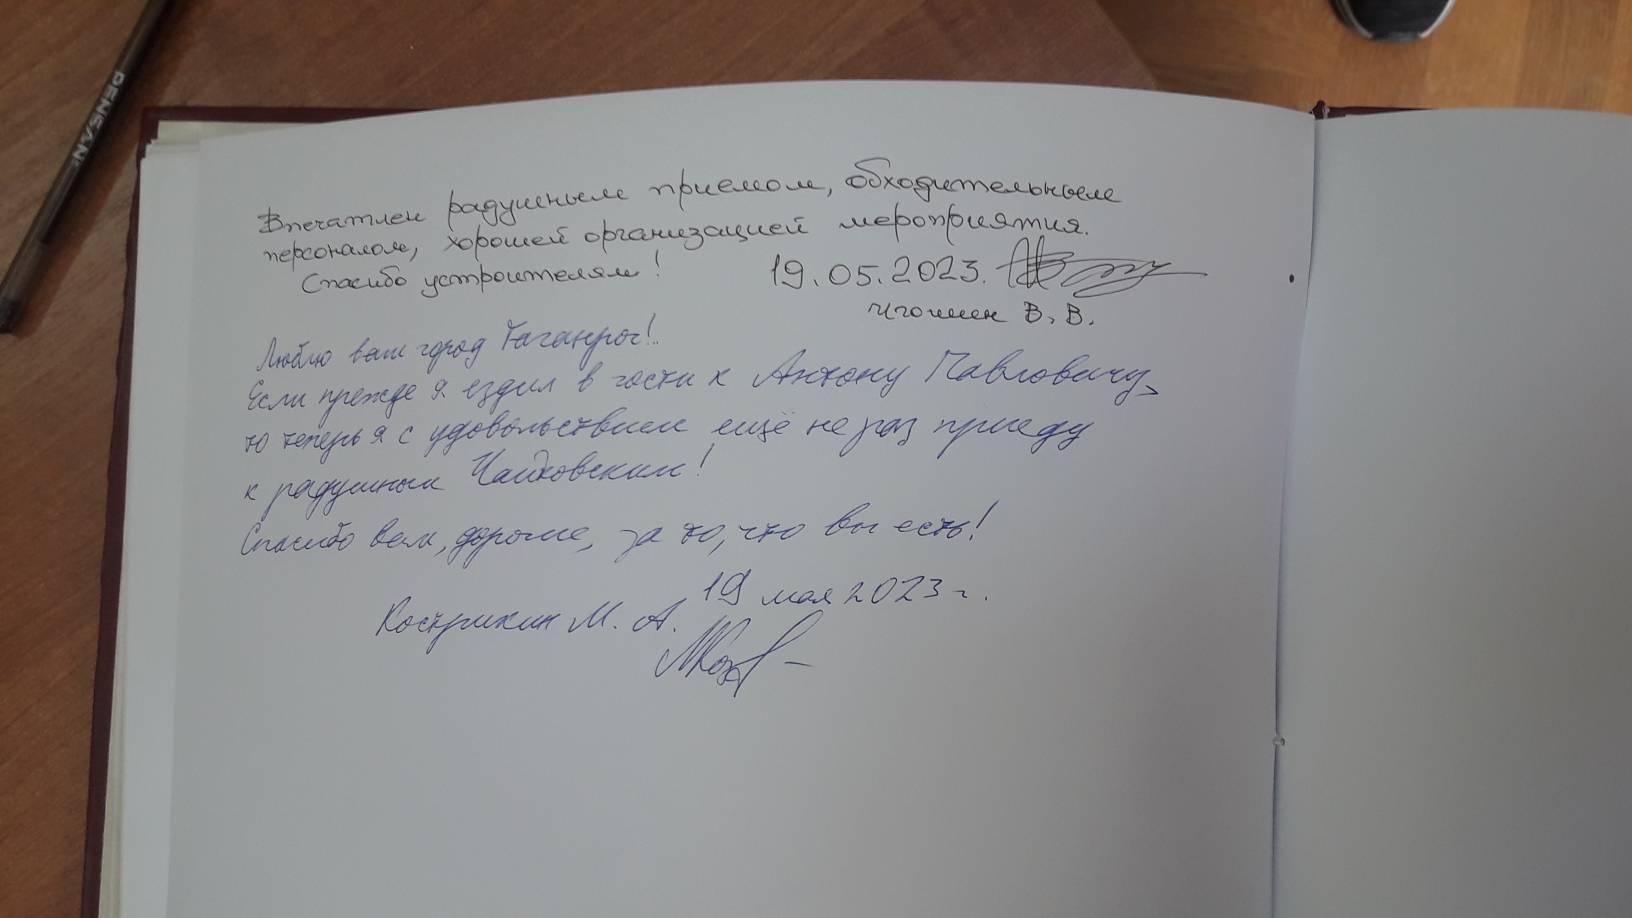 PENSAN
Впечатлен радушным приемом, обходительным
персоналом, хорошей организацией мероприятия.
Спасибо устроителям!
19.05.2023.
В. В.
Люблю ваш город Таганрог!..
Если прежде я ездил в гости к Антону Павловичу,
то теперь я с удовольствием ещё не раз приеду
к радушным Чайковским!
Спасибо Вам, дорогие, за то, что вы есть!
19 мая 2023 г.
Кострикин М. А.